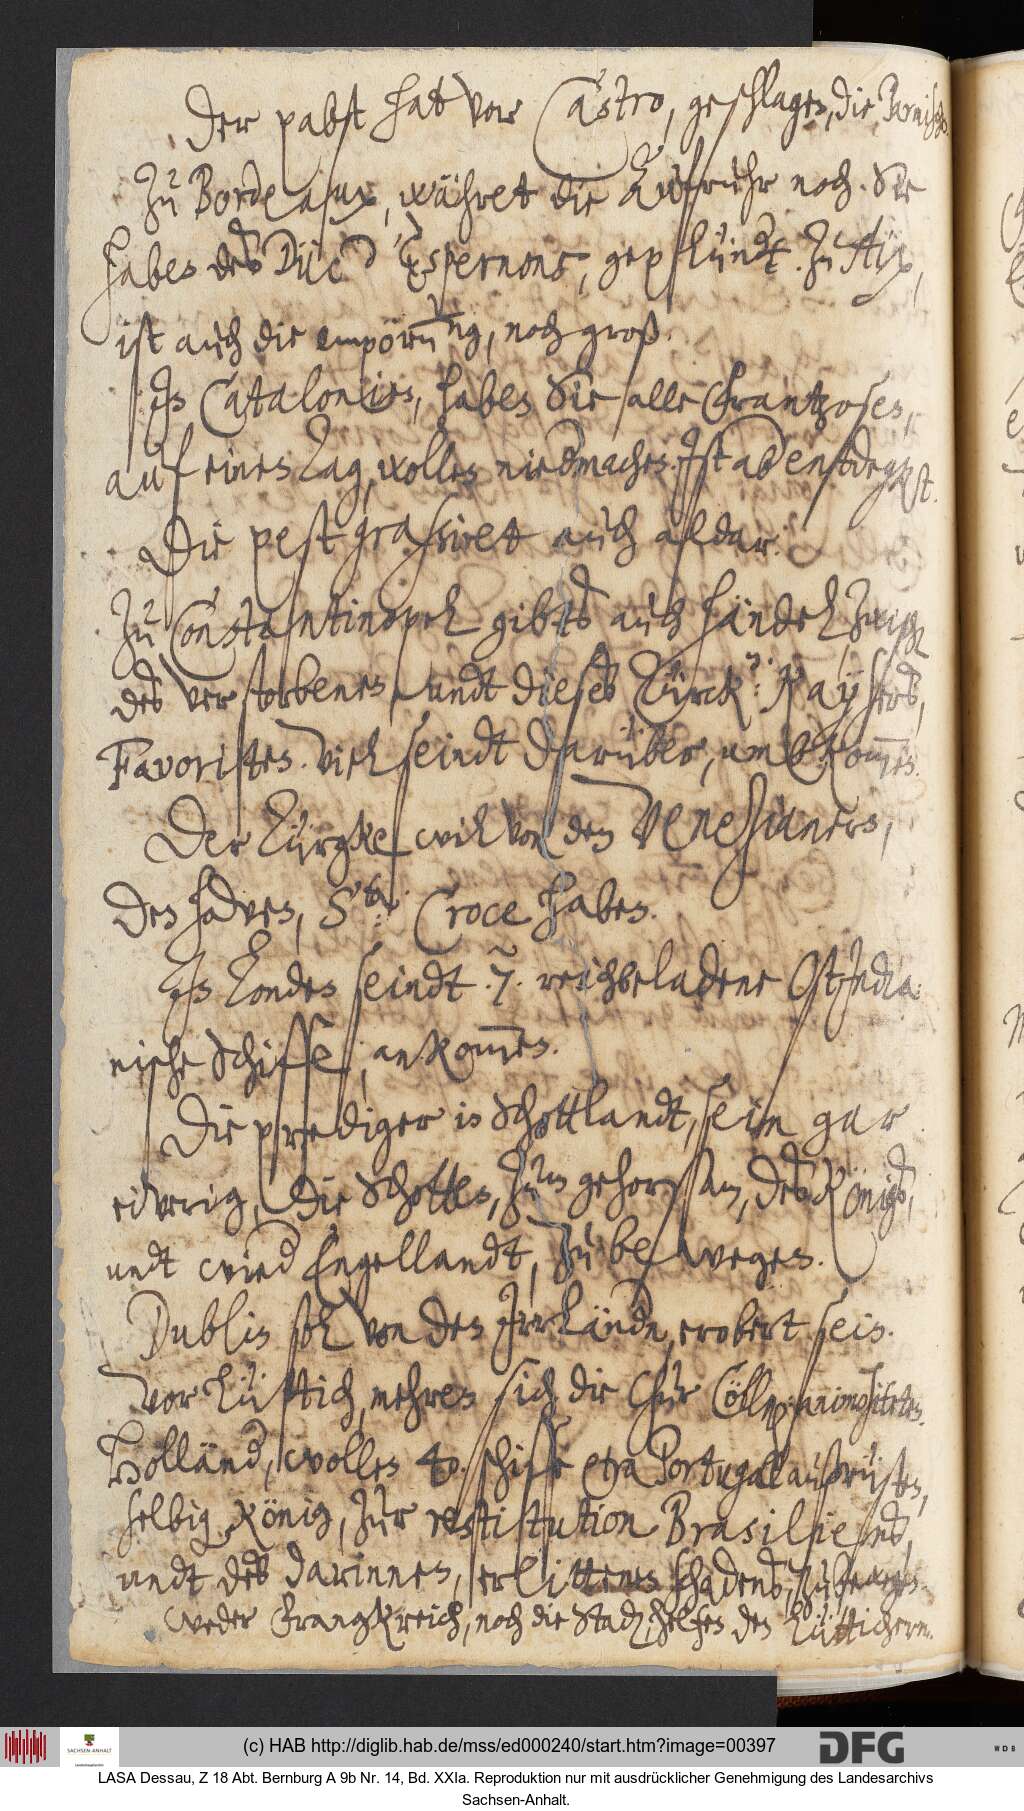 Der pabst hat vor Castro, geschlagen, die Parmisch:
Zu Bordeaux, währet die Aufruhr noch. Sie
haben des Düc d'Espernons, geplündert. Zu Aix,
ist auch die empörung, noch groß.
In Catalonien, haben Sie alle Frantzosen,
auf einen Tag, wollen niedermachen. Ist aber entdegkt.
Die pest grassiret auch aldar.
Zu Constantinopel gibts auch händel, zwisch
des verstorbenen, undt dieses Türck: Kaysers,
Favoriten. Viel seindt darüber, umbkommen.
Der Türgke will von den Venezianern,
den haven, Sta: Croce haben.
In Londen seindt .7. reichbeladene OstIndia-
nische Schiffe, ankommen.
Die prediger in Schottlandt, sein gar
eiverig, die Schotten, zum gehorsam, des Königs,
undt wieder Engellandt, zu bewegen.
Dublin soll von den Irrländern, erobert sein.
Vor Lüttich, mehren sich die Chur Cöllnischen
Holländer, wollen 40. schiffe contra Portugall außrüsten,
selbig König, zur restitution Brasiliens,
undt des darinnen, erlittenen schadens, zu bewegen.
Weder Frangkreich, noch die Stadt helfen den Lüttichern.
(c) HAB http://diglib.hab.de/mss/ed000240/start.htm?image=00397
SACHSEN-ANHALT
DFG
WDB
LASA Dessau, Z 18 Abt. Bernburg A 9b Nr. 14, Bd. XXIa. Reproduktion nur mit ausdrücklicher Genehmigung des Landesarchivs
Sachsen-Anhalt.